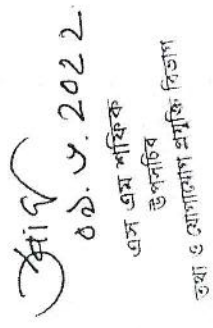 ০১.৮.2022
এস এম শফিক
উপসচিব
তথ্য ও যোগাযোগ প্রযুক্তি বিভাগ